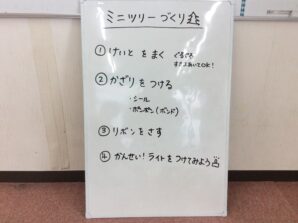 ミニツリーづくり
① けいと を まく ぐるぐる
すきまあいてOK!
② かざり を つける
・シール
・ポンポン(ボンド)
③ リボン を さす
④ かんせい! ライト を つけてみよう